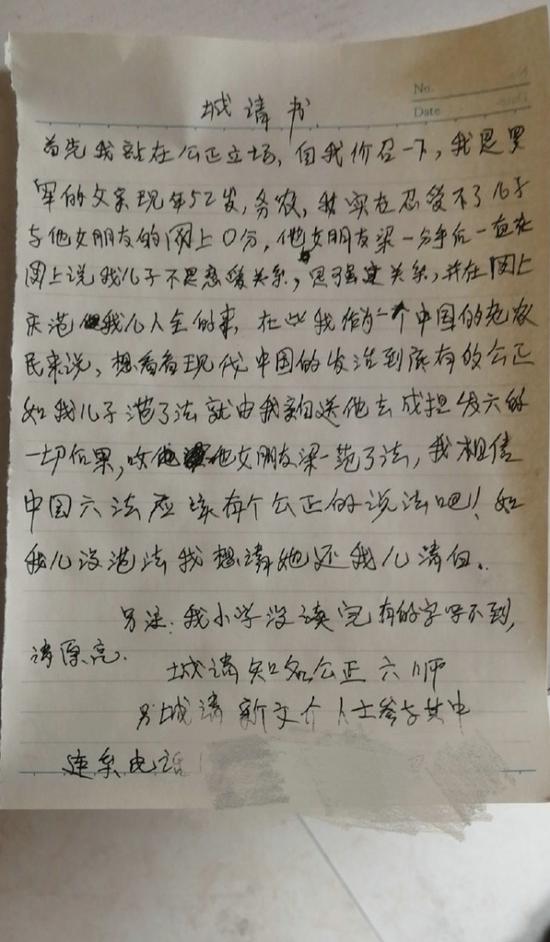 No.
Date
城请书
首先我站在公正立场,自我价召一下,我是罗
军的父亲现年52岁,务农,我实在忍受不了儿子
与他女朋友的网上0分,他女朋友梁一分手后一直在
网上说我儿子不是恋爱关系,是强迫关系,并在网上
我儿人全的事,在此我作为一个中国的老农
民来说,想看看现代中国的发治到底有的公正
如我儿子范了法就由我亲自送他去成担发六的
一切后果,他女朋友梁一范了法,我相信
中国六法应该有个公正的说法吧!如
我儿没范法我想请她还我儿清白.
另注:我小学没读完有的字写不到,
请原亮.
城请知名公正六师
另城请新文介人士参与其中
连系电话